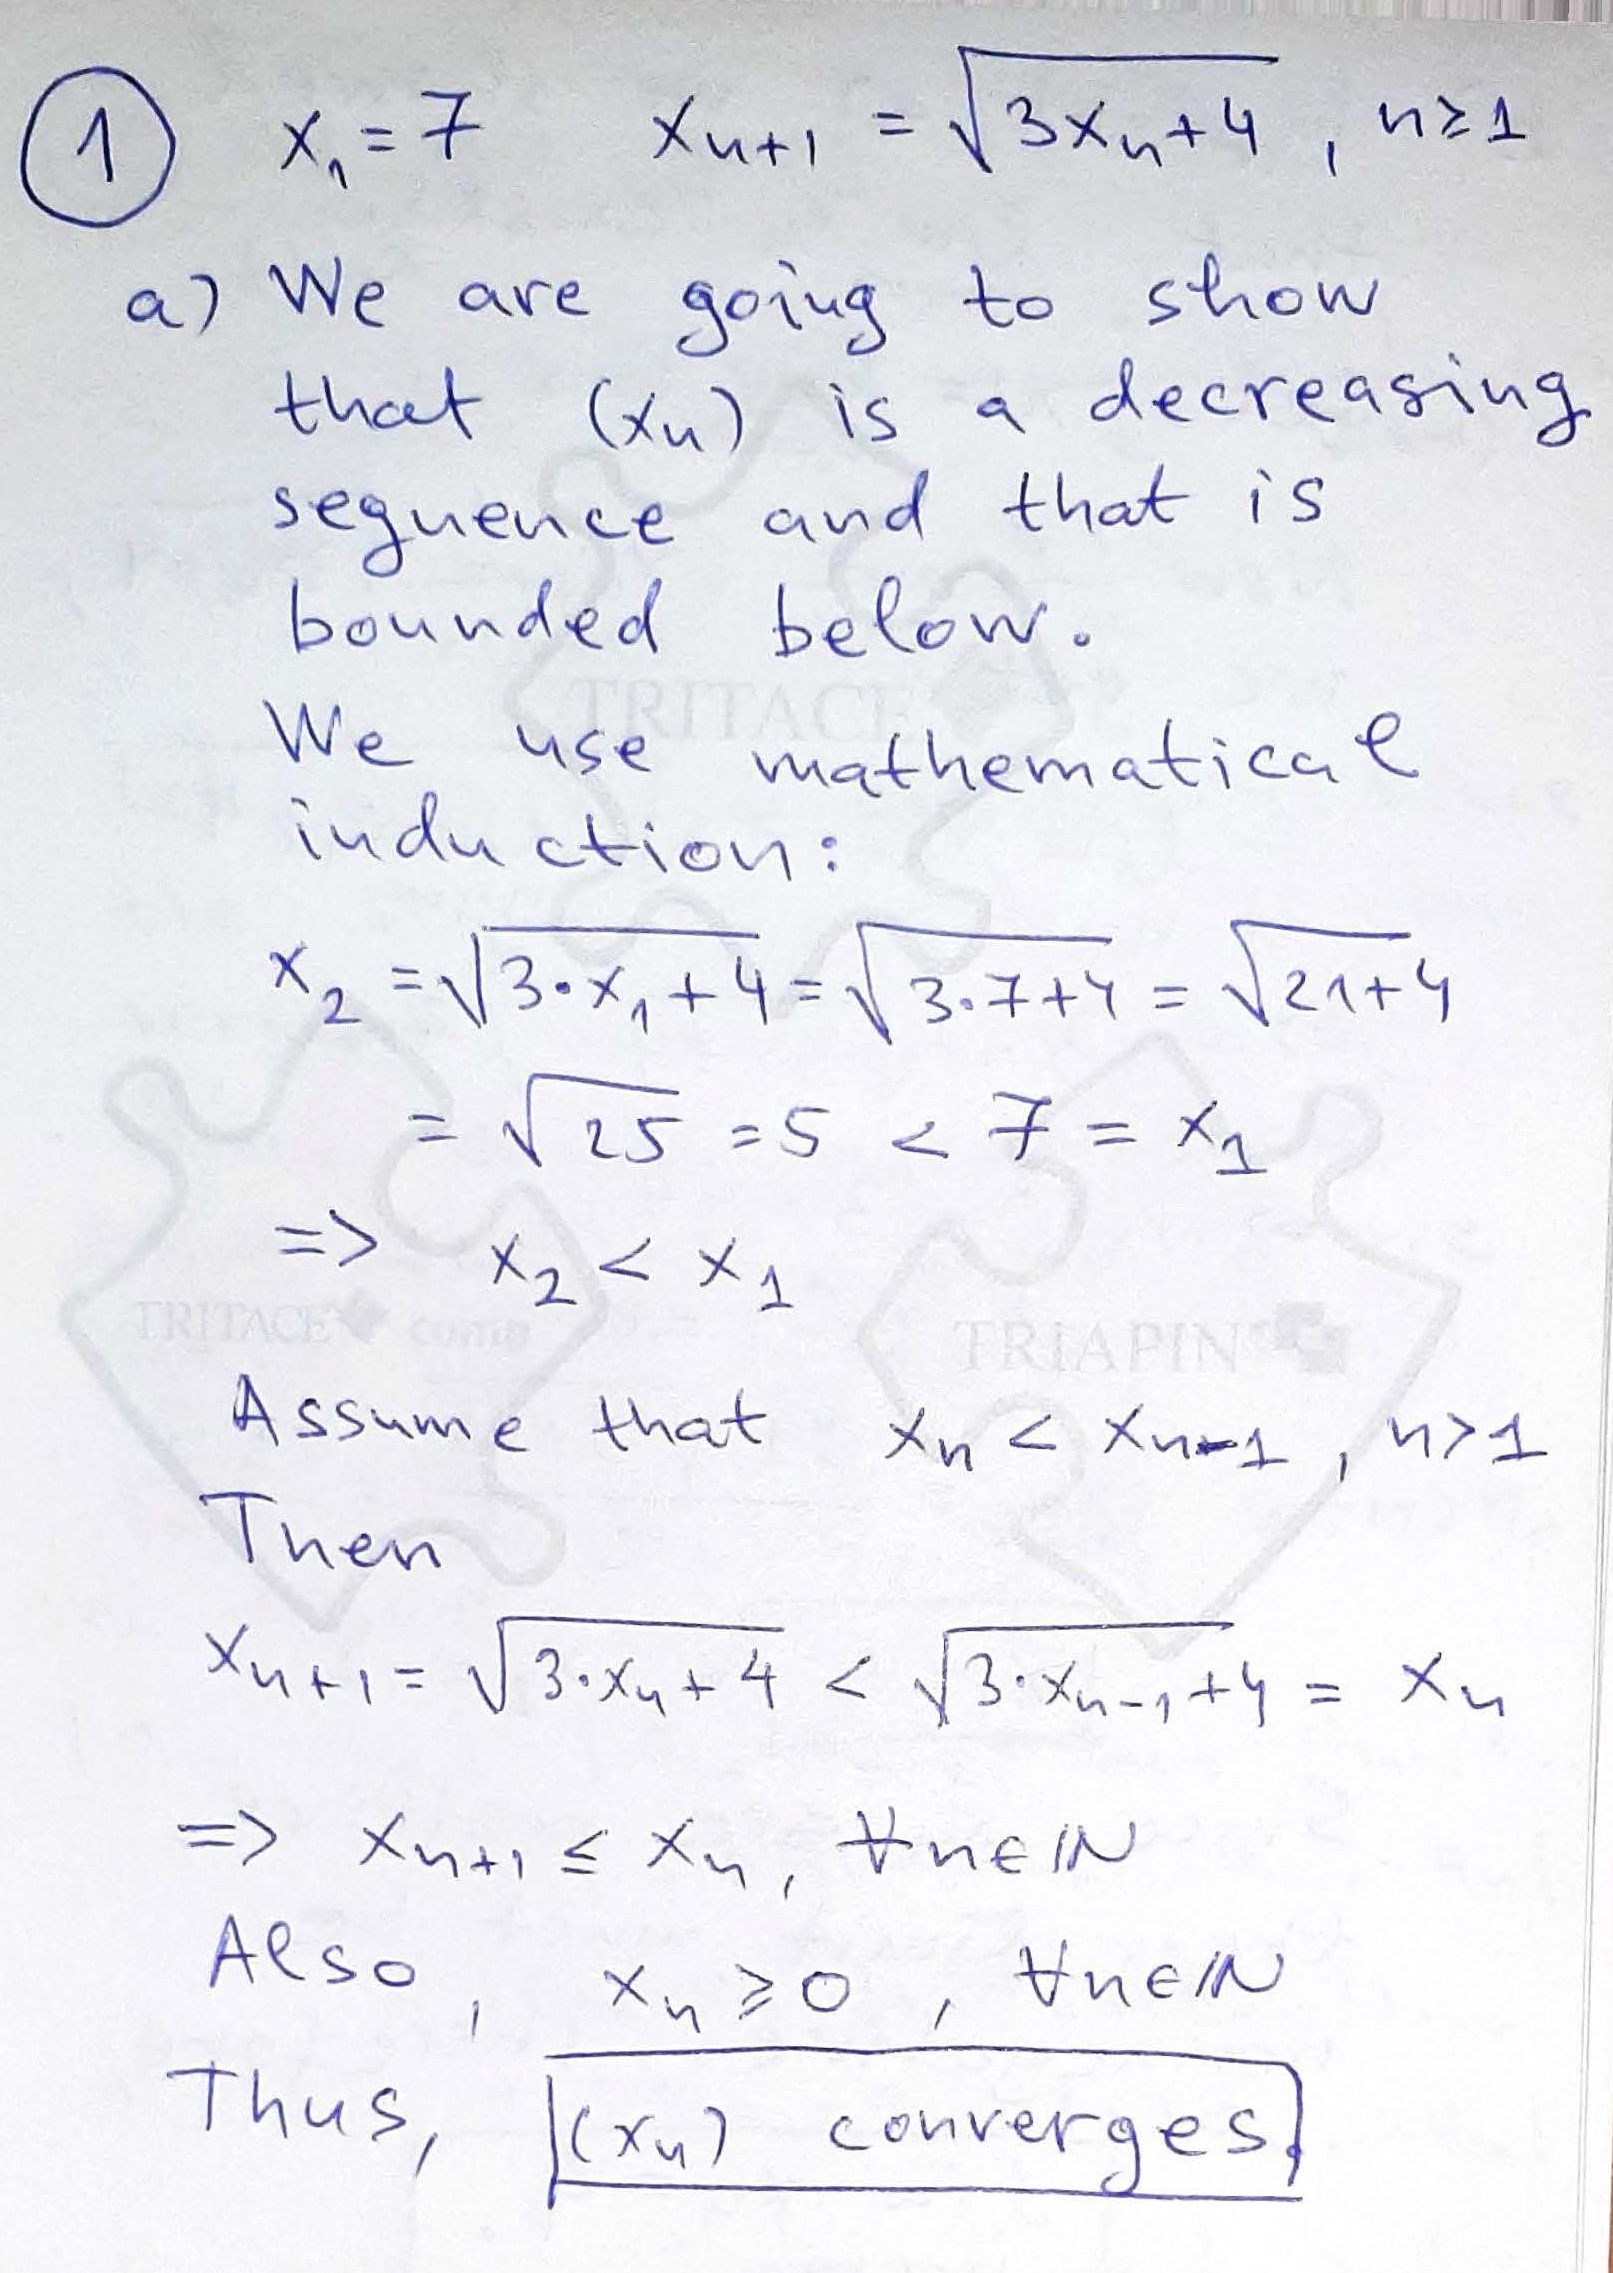 1 x₁ = 7 xₙ₊₁ = √(3xₙ+4) , n≥1
a) We are going to show
that (xₙ) is a decreasing
sequence and that is
bounded below.
TRITACE
We use mathematical
induction:
x₂ = √(3·x₁+4) = √(3·7+4) = √(21+4)
= √25 = 5 < 7 = x₁
=> x₂ < x₁
TRITACE comb TRIAPIN
Assume that xₙ < xₙ₋₁ , n>1
Then
xₙ₊₁ = √(3·xₙ+4) < √(3·xₙ₋₁+4) = xₙ
=> xₙ₊₁ ≤ xₙ , ∀n∈ℕ
Also, xₙ ≥ 0 , ∀n∈ℕ
Thus, (xₙ) converges.